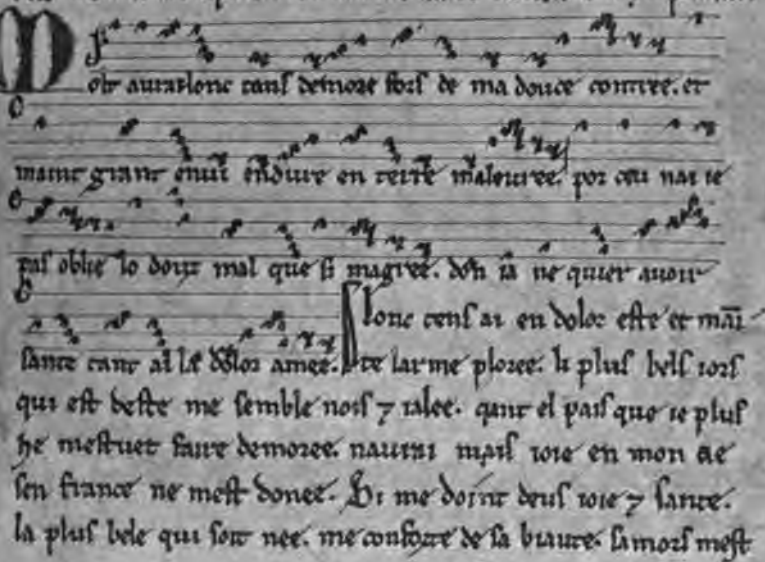 Molt aurai lonc tans demore fors de ma douce contree. et
maint grant enui endure en terre maleuree. por ceu nai ie
pas oblie lo douz mal que si magree. don ia ne quier auoir
sante tant ai la dolor amee. Lonc tens ai en dolor este et mai
te larme ploree. li plus bels iors
qui est deste me semble nois ⁊ ialee. qant el pais que ie plus
he mestuet faire demoree. naurai mais ioie en mon ae
sen france ne mest donee. Si me doint deus ioie ⁊ sante.
la plus bele qui soit nee. me conforte de sa biaute. samors mest